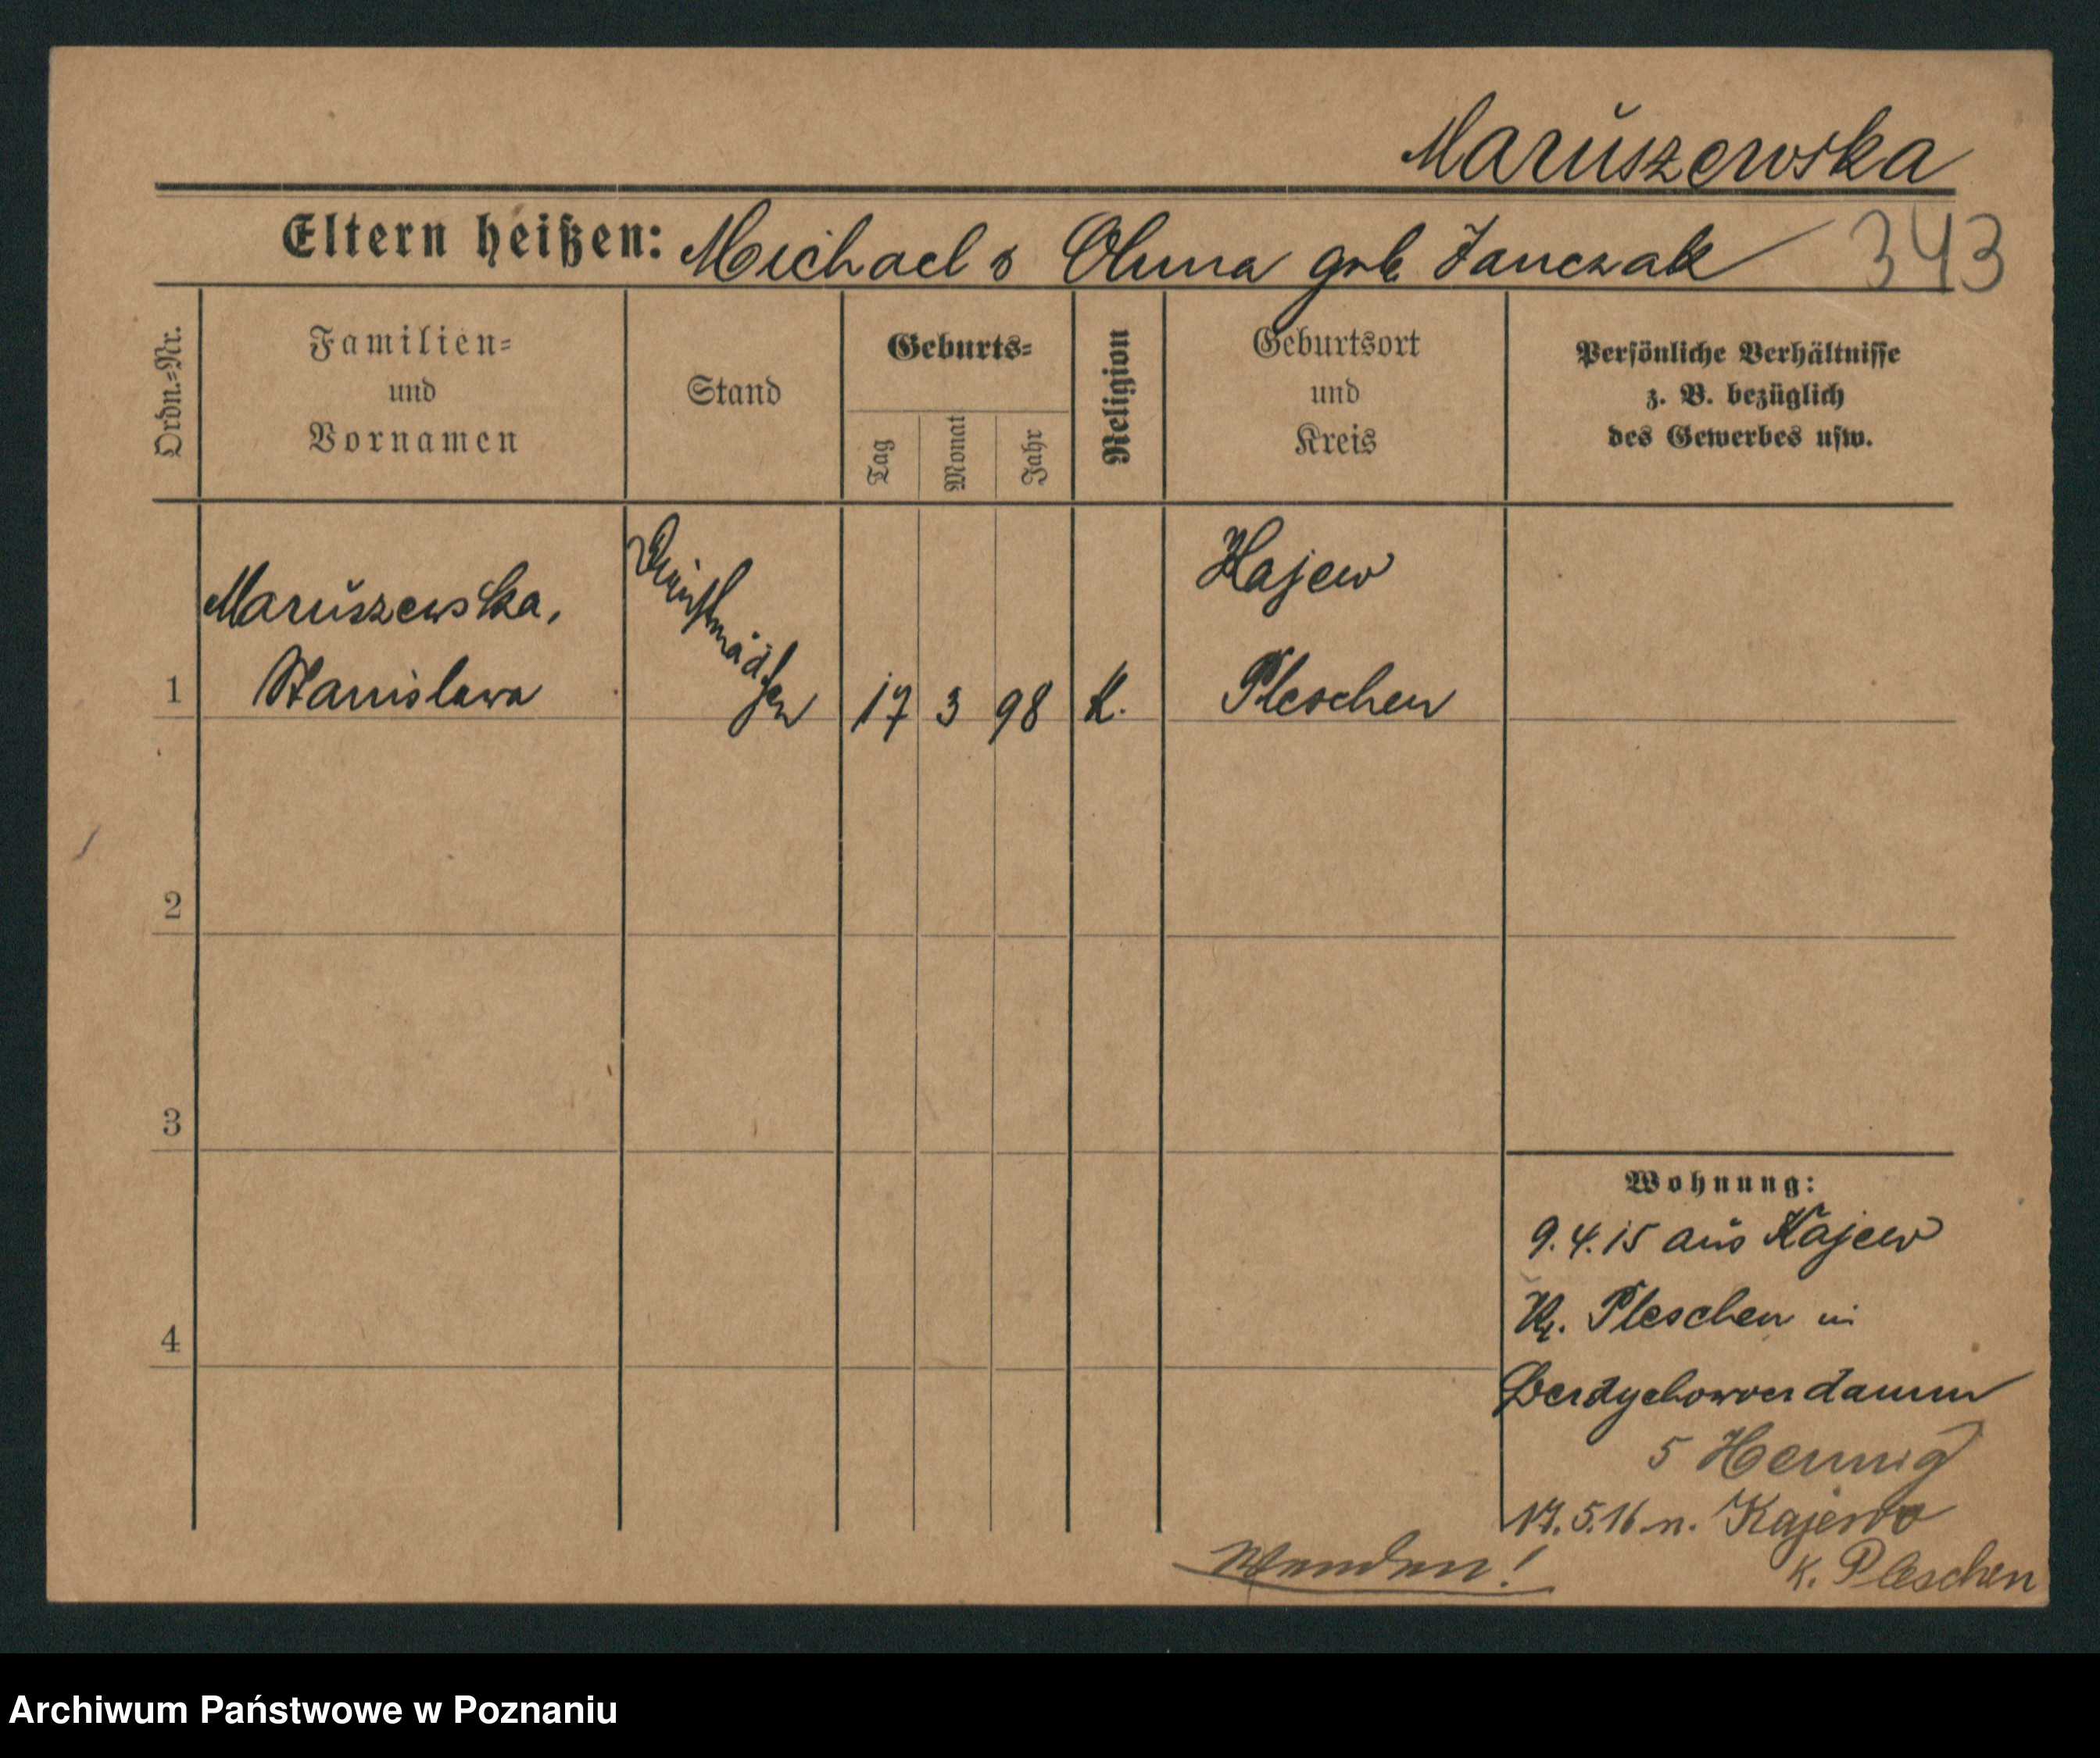 Maruszewska
Eltern heißen: Michael & Anna geb Janczak
343
Ordn.=Nr.
Familien=
und
Vornamen
Stand
Geburts=
Tag
Monat
Jahr
Religion
Geburtsort
und
Kreis
Persönliche Verhältnisse
z. B. bezüglich
des Gewerbes usw.
1
Maruszewska,
Stanislawa
Dienstmädchen
17 3 98 K.
Kajew
Pleschen
2
3
4
Wohnung:
9.4.15 aus Kajew
Kr. Pleschen in
Berdychowoerdamm
5 Hennig
17.5.16 n. Kajewo
K. Pleschen
Wenden!
Archiwum Państwowe w Poznaniu